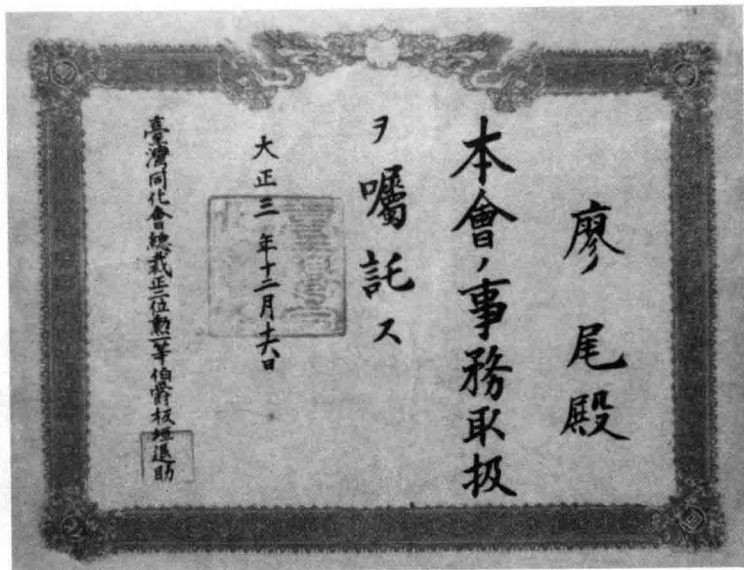 廖尾殿
本會ノ事務取扱
ヲ囑託ス
大正三年十二月十六日
臺灣同化會總裁正二位勲一等伯爵板垣退助